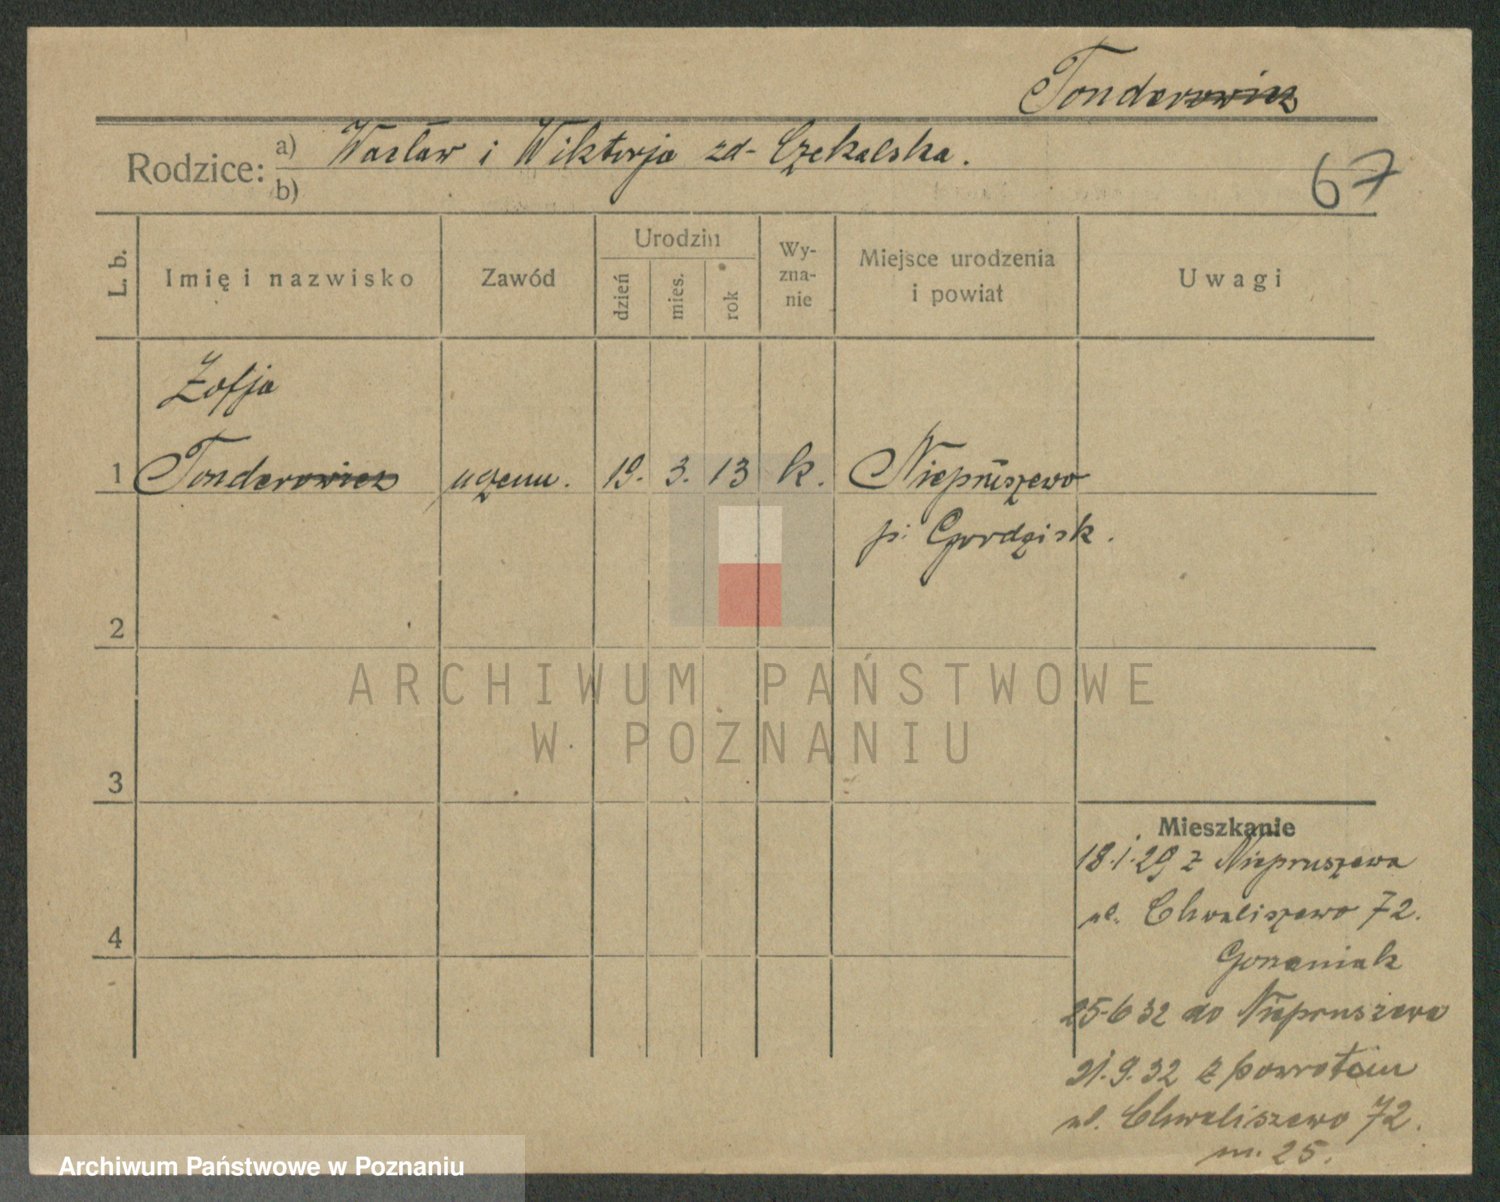 Tonderowicz
Rodzice: a) Wacław i Wiktorja zd- Czekalska.
b)
67
L. b.
Imię i nazwisko
Zawód
Urodzin
dzień
mies.
rok
Wy-
zna-
nie
Miejsce urodzenia
i powiat
Uwagi
Zofja
1 Tonderowicz uczenn. 19. 3. 13 k. Niepruszewo
p: Grodzisk.
2
3
4
Mieszkanie
18.1.29 z Niepruszewa
ul. Chwaliszewo 72.
25-6 32 do Niepruszewa
21.9.32 z powrotem
ul. Chwaliszewo 72.
m. 25.
ARCHIWUM PAŃSTWOWE
W POZNANIU
Archiwum Państwowe w Poznaniu